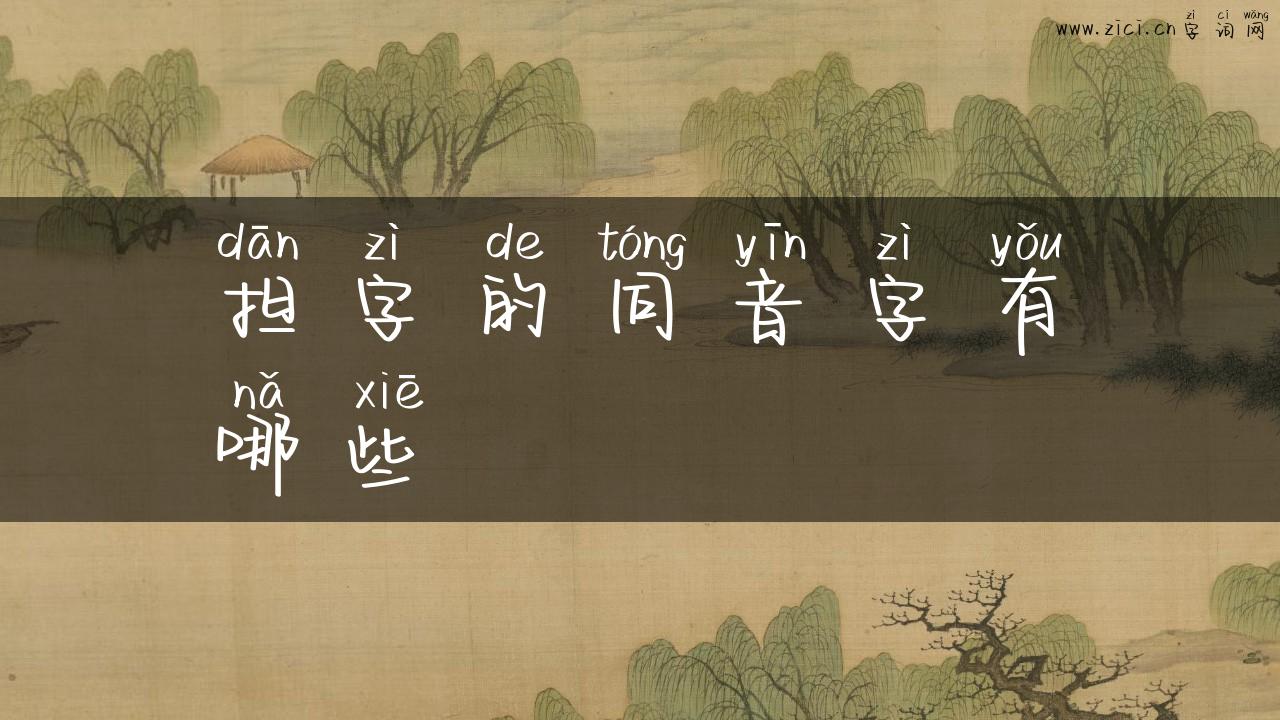 zì cí wǎng
www.zici.cn 字词网
dān zì de tóng yīn zì yǒu
担字的同音字有
nǎ xiē
哪些